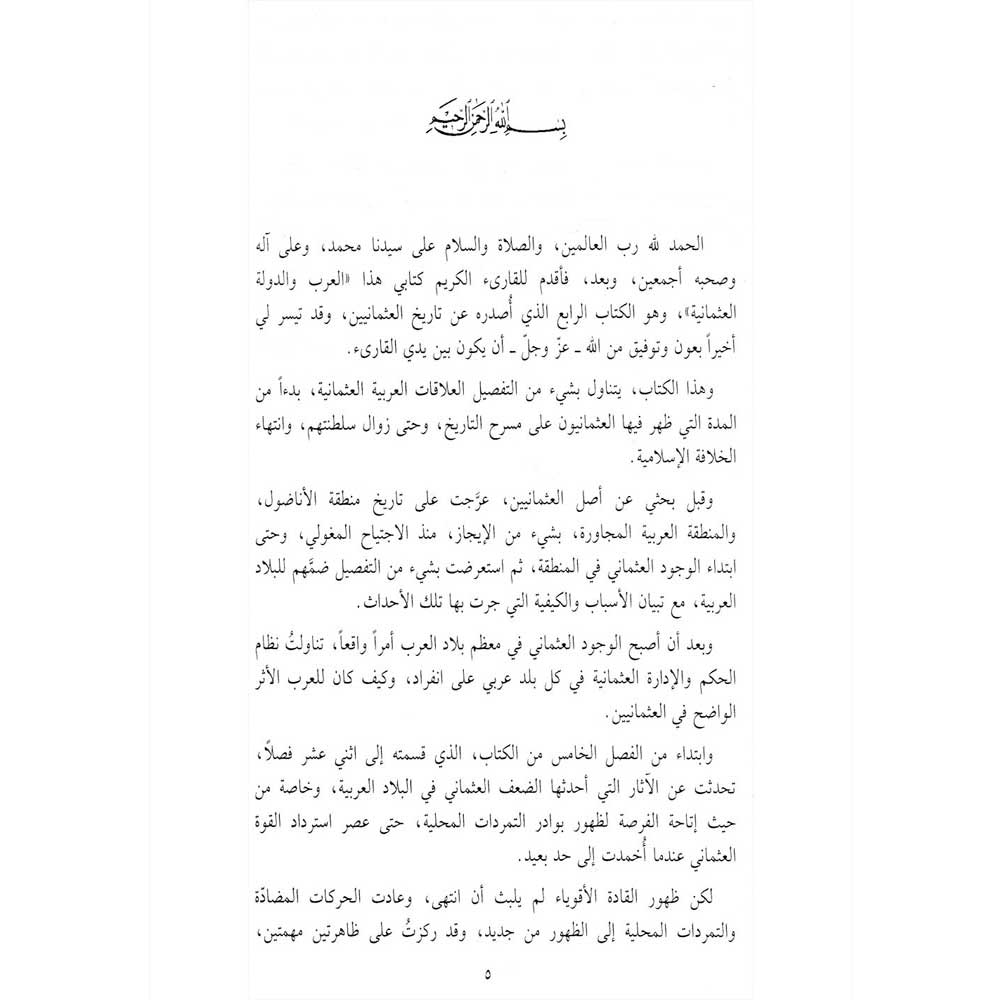 بسم الله الرحمن الرحيم
الحمد لله رب العالمين، والصلاة والسلام على سيدنا محمد، وعلى آله
وصحبه أجمعين، وبعد، فأقدم للقارىء الكريم كتابي هذا «العرب والدولة
العثمانية»، وهو الكتاب الرابع الذي أُصدره عن تاريخ العثمانيين، وقد تيسر لي
أخيراً بعون وتوفيق من الله ـ عزّ وجلّ ـ أن يكون بين يدي القارىء.
وهذا الكتاب، يتناول بشيء من التفصيل العلاقات العربية العثمانية، بدءاً من
المدة التي ظهر فيها العثمانيون على مسرح التاريخ، وحتى زوال سلطنتهم، وانتهاء
الخلافة الإسلامية.
وقبل بحثي عن أصل العثمانيين، عرَّجت على تاريخ منطقة الأناضول،
والمنطقة العربية المجاورة، بشيء من الإيجاز، منذ الاجتياح المغولي، وحتى
ابتداء الوجود العثماني في المنطقة، ثم استعرضت بشيء من التفصيل ضمَّهم للبلاد
العربية، مع تبيان الأسباب والكيفية التي جرت بها تلك الأحداث.
وبعد أن أصبح الوجود العثماني في معظم بلاد العرب أمراً واقعاً، تناولتُ نظام
الحكم والإدارة العثمانية في كل بلد عربي على انفراد، وكيف كان للعرب الأثر
الواضح في العثمانيين.
وابتداء من الفصل الخامس من الكتاب، الذي قسمته إلى اثني عشر فصلاً،
تحدثت عن الآثار التي أحدثها الضعف العثماني في البلاد العربية، وخاصة من
حيث إتاحة الفرصة لظهور بوادر التمردات المحلية، حتى عصر استرداد القوة
العثماني عندما أُخمدت إلى حد بعيد.
لكن ظهور القادة الأقوياء لم يلبث أن انتهى، وعادت الحركات المضادّة
والتمردات المحلية إلى الظهور من جديد، وقد ركزتُ على ظاهرتين مهمتين،
٥